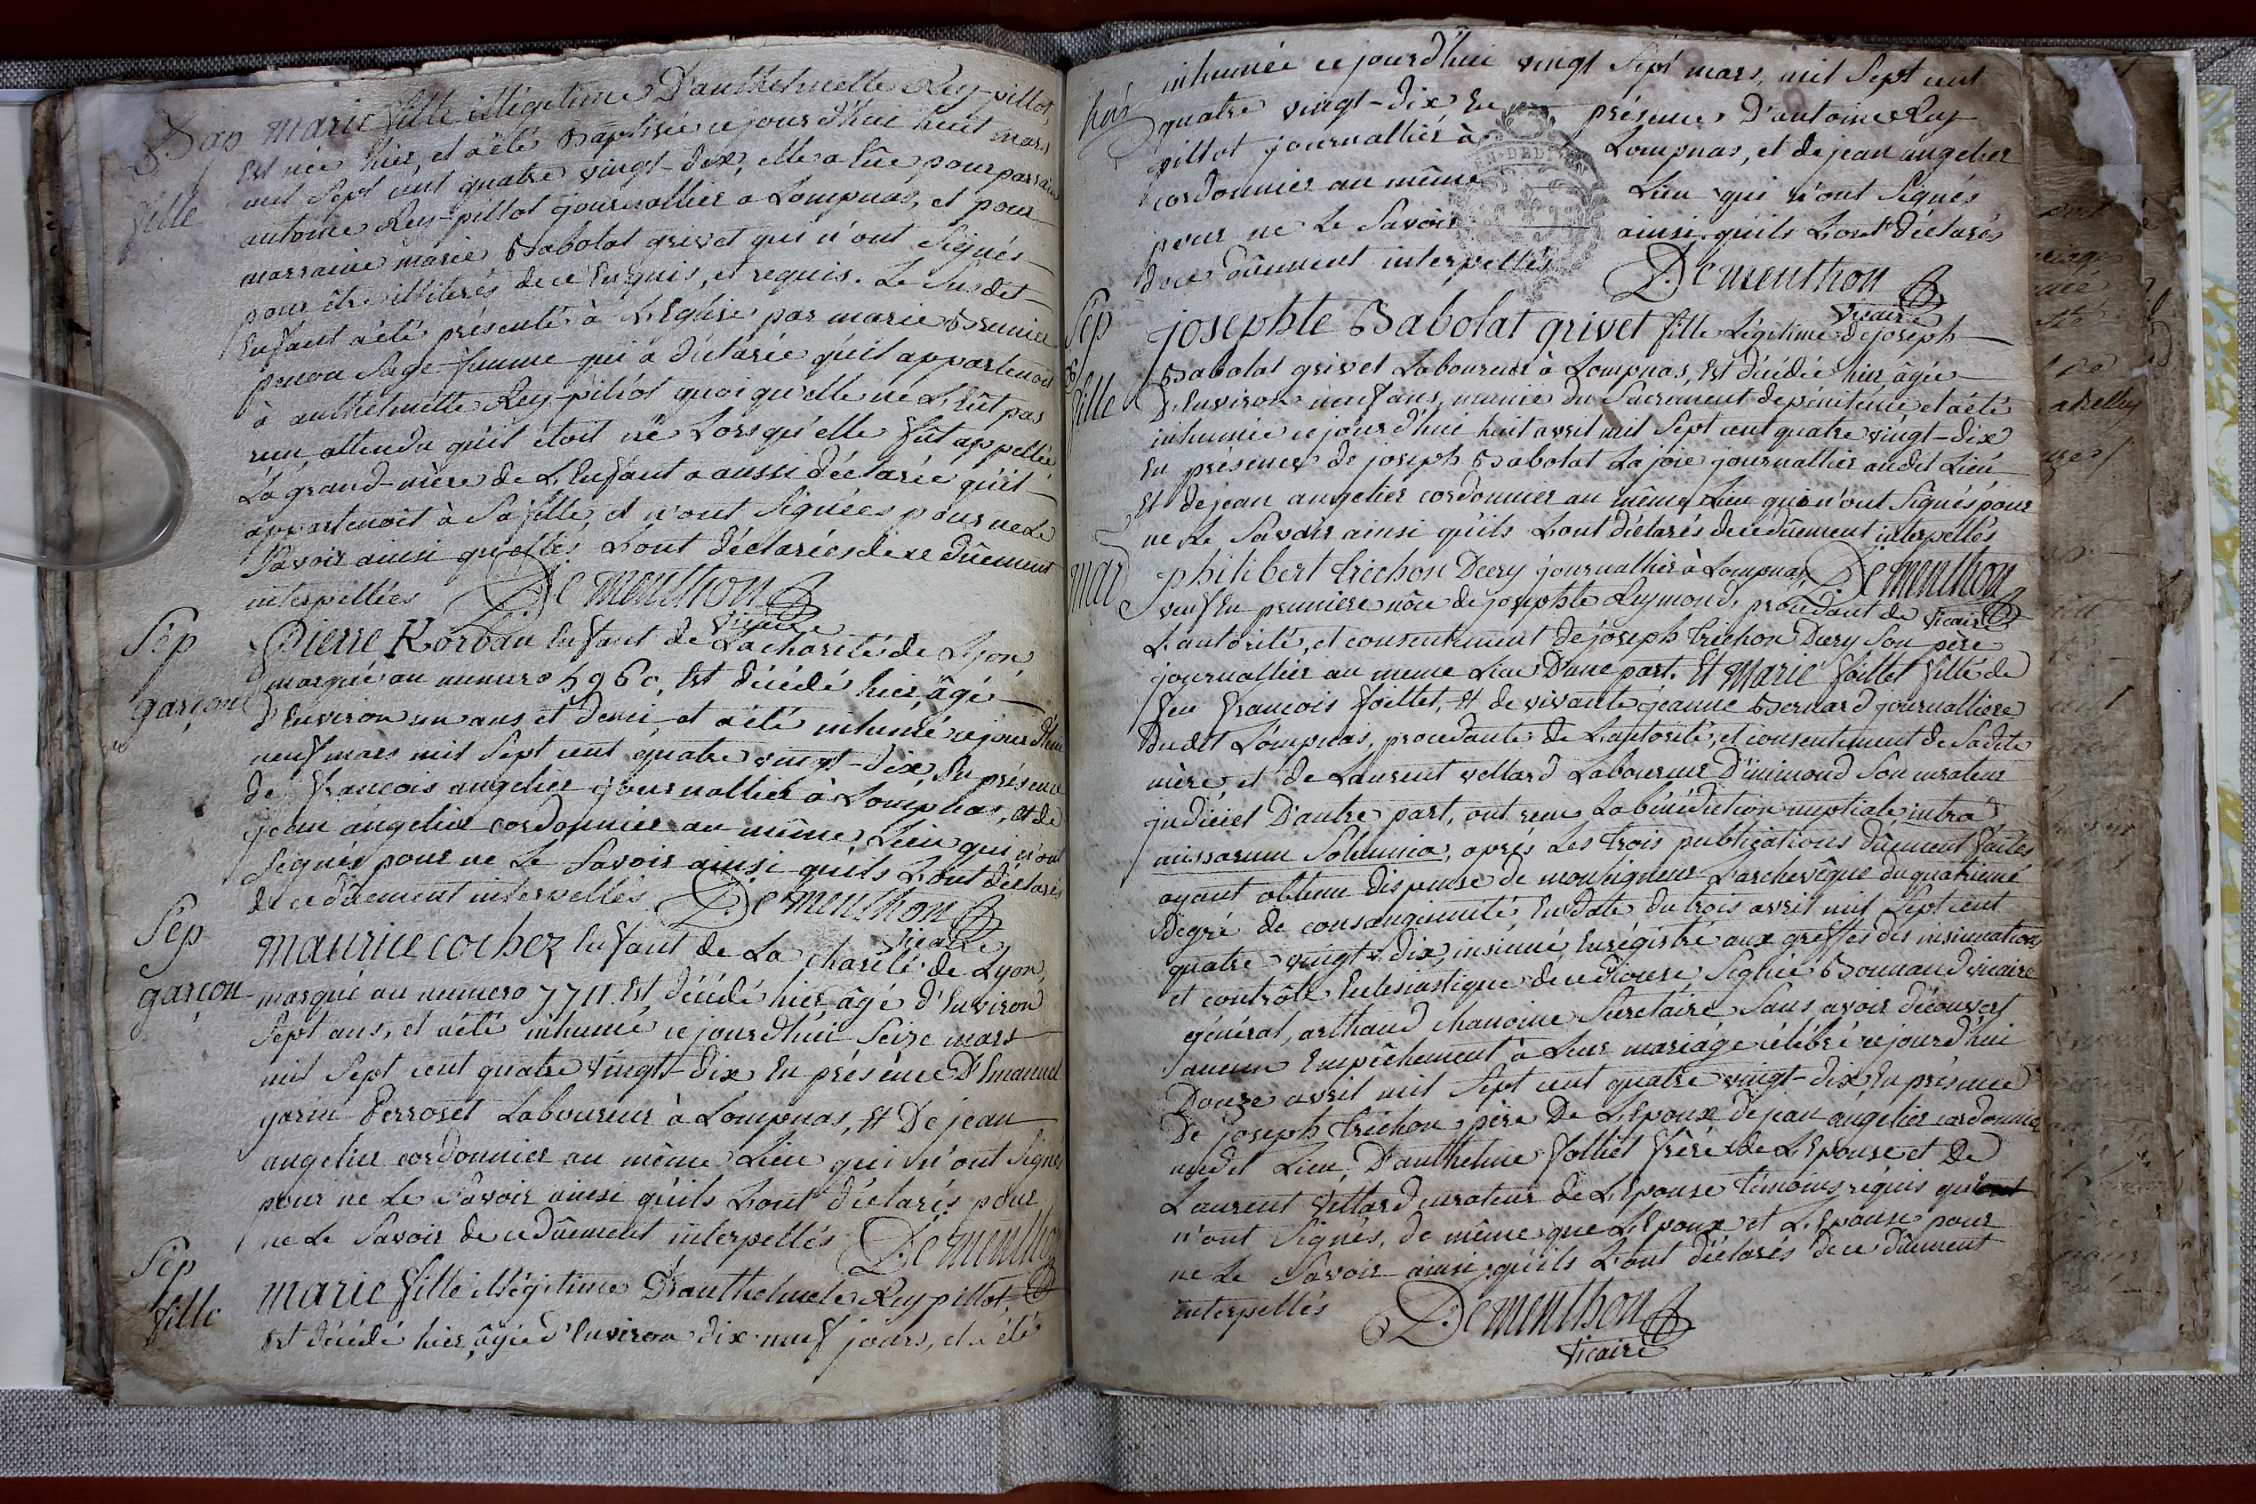 Bap
fille
marie fille illégitime D'anthelmette Rey-pillot,
Est née hier, et a été Baptisée ce jourd'hui huit mars
mil Sept cent quatre vingt-dix, elle a Eûe pour parrain
antoine Rey-pillot journallier a Lompnas, et pour
marraine marie Babolat grivet qui n'ont Signés
pour être illiterés de ce Enquis, et requis. Le Susdet
Enfant a été présenté à L'Eglise par marie Brunier
penon Sage-femme qui a déclarée qu'il appartenoit
à anthelmette Rey-pillot quoi qu'elle ne L'Eût pas
reçu attendu qu'il étoit né Lorsqu'elle fût appellée
La grand-mère de L'Enfant a aussi déclarée qu'il
appartenoit à Sa fille, et n'ont Signées pour ne Le
Savoir ainsi qu'elles L'ont déclarées de ce dûement
interpellées Dementhon
vicaire
Sep
garçon
Pierre Korban Enfant de La charité de Lyon,
marqué au numero 5960, Est décédé hier, âgé
d'Environ un ans et demi, et a été inhumé ce jourd'hui
neuf mars mil Sept cent quatre vingt-dix En présence
de françois angelier journallier à Lompnas, et de
jean angelier cordonnier au même Lieu qui n'ont
Signés pour ne Le Savoir ainsi qu'ils L'ont déclarés
de ce dûement interpellés Dementhon
vicaire
Sep
garçon
maurice cochez Enfant de La charité de Lyon,
marqué au numero 7711 Est décédé hier âgé d'Environ
Sept ans, et a été inhumé ce jourd'hui Seize mars
mil Sept cent quatre vingt-dix En présence D'Emanuel
garin Perroset Laboureur à Lompnas, et De jean
angelier cordonnier au même Lieu qui n'ont Signés
pour ne Le Savoir ainsi qu'ils L'ont déclarés pour
ne Le Savoir de ce dûement interpellés Dementhon
Sep
fille
marie fille illégitime D'anthelmete Rey pillot,
Est décédé hier, âgée d'Environ dix-neuf jours, et a été
inhumée ce jourd'hui vingt Sept mars mil Sept cent
quatre vingt-dix En présence D'antoine Rey
pillot journallier à Lompnas, et de jean angelier
cordonnier au même Lieu qui n'ont Signés
pour ne Le Savoir ainsi qu'ils L'ont déclarés
de ce dûement interpellés Dementhon
vicaire
Sep
fille
josephte Babolat grivet fille Légitime de joseph
Babolat grivet Laboureur à Lompnas, Est décédée hier, âgée
D'Environ neuf ans, munie du Sacrement de pénitence, et a été
inhumée ce jourd'hui huit avril mil Sept cent quatre vingt-dix
En présence de joseph Babolat Lajoie journallier audit Lieu
Et de jean angelier cordonnier au même Lieu qui n'ont Signés pour
ne Le Savoir ainsi qu'ils L'ont déclarés de ce dûement interpellés
Dementhon
vicaire
mar
philibert trichon Decry journallier à Lompnas
veuf En premiere nôce de josephte Reymond, procedant de
L'autorité, et consentement de joseph trichon Decry Son père
journallier au meme Lieu D'une part. Et Marie folliet fille de
feu françois folliet, et de vivante jeanne Bernard journalliere
Dudit Lompnas, procedante de L'autorité, et consentement de Sadite
mère, et de Laurent vettard Laboureur D'inimond Son curateur
judiciel D'autre part, ont reçu La bénédiction nuptiale intra
missarum Solemnia, après Les trois publications dûement faites
ayant obtenu dispense de monseigneur L'archevêque du quatrieme
Degré de consanguinité, En date du trois avril mil Sept cent
quatre vingt-dix, insinué Enrégistré aux greffes des insinuations
et contrôle Eclesiastique de ce diocese, Signée Bonnand vicaire
général, arthaud chanoine Secretaire Sans avoir découvert
aucun Empêchement à Leur mariage célébré ce jourd'hui
Douze avril mil Sept cent quatre vingt-dix En présence
De joseph trichon père De L'Epoux, de jean angelier cordonnier
audit Lieu, D'anthelme folliet frère de L'Epouse et De
Laurent vettard curateur de L'Epouse témoins requis qui
n'ont Signés, de même que L'Epoux et L'Epouse pour
ne Le Savoir ainsi qu'ils L'ont déclarés de ce dûement
interpellés Dementhon
vicaire